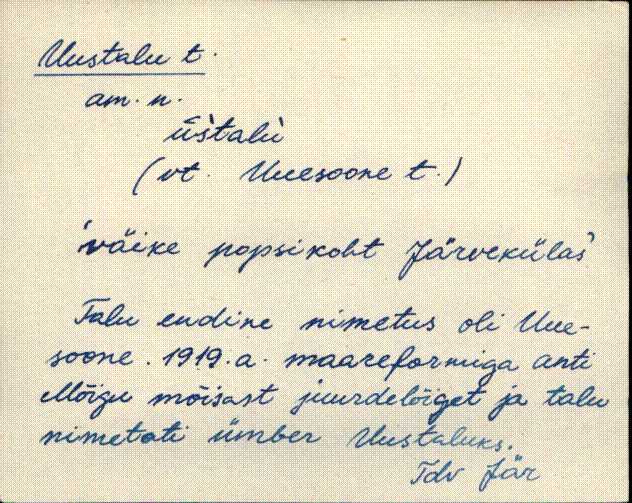 Uustalu t.
am. n.
ūs̀talù
(vt. Uuesoone t.)
'väike popsikoht Järvekülas'
Talu endine nimetus oli Uue-
soone. 1919. a. maareformiga anti
Mõigu mõisast juurdelõiget ja talu
nimetati ümber Uustaluks.
Tdv Jär